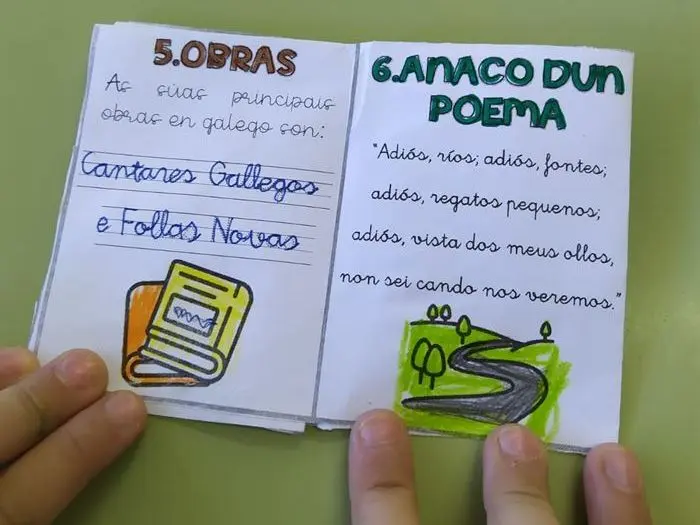 5.OBRAS
As súas principais
obras en galego son:
Cantares Gallegos
e Follas Novas
6.ANACO DUN
POEMA
"Adiós, ríos; adiós, fontes;
adiós, regatos pequenos;
adiós, vista dos meus ollos,
non sei cando nos veremos."